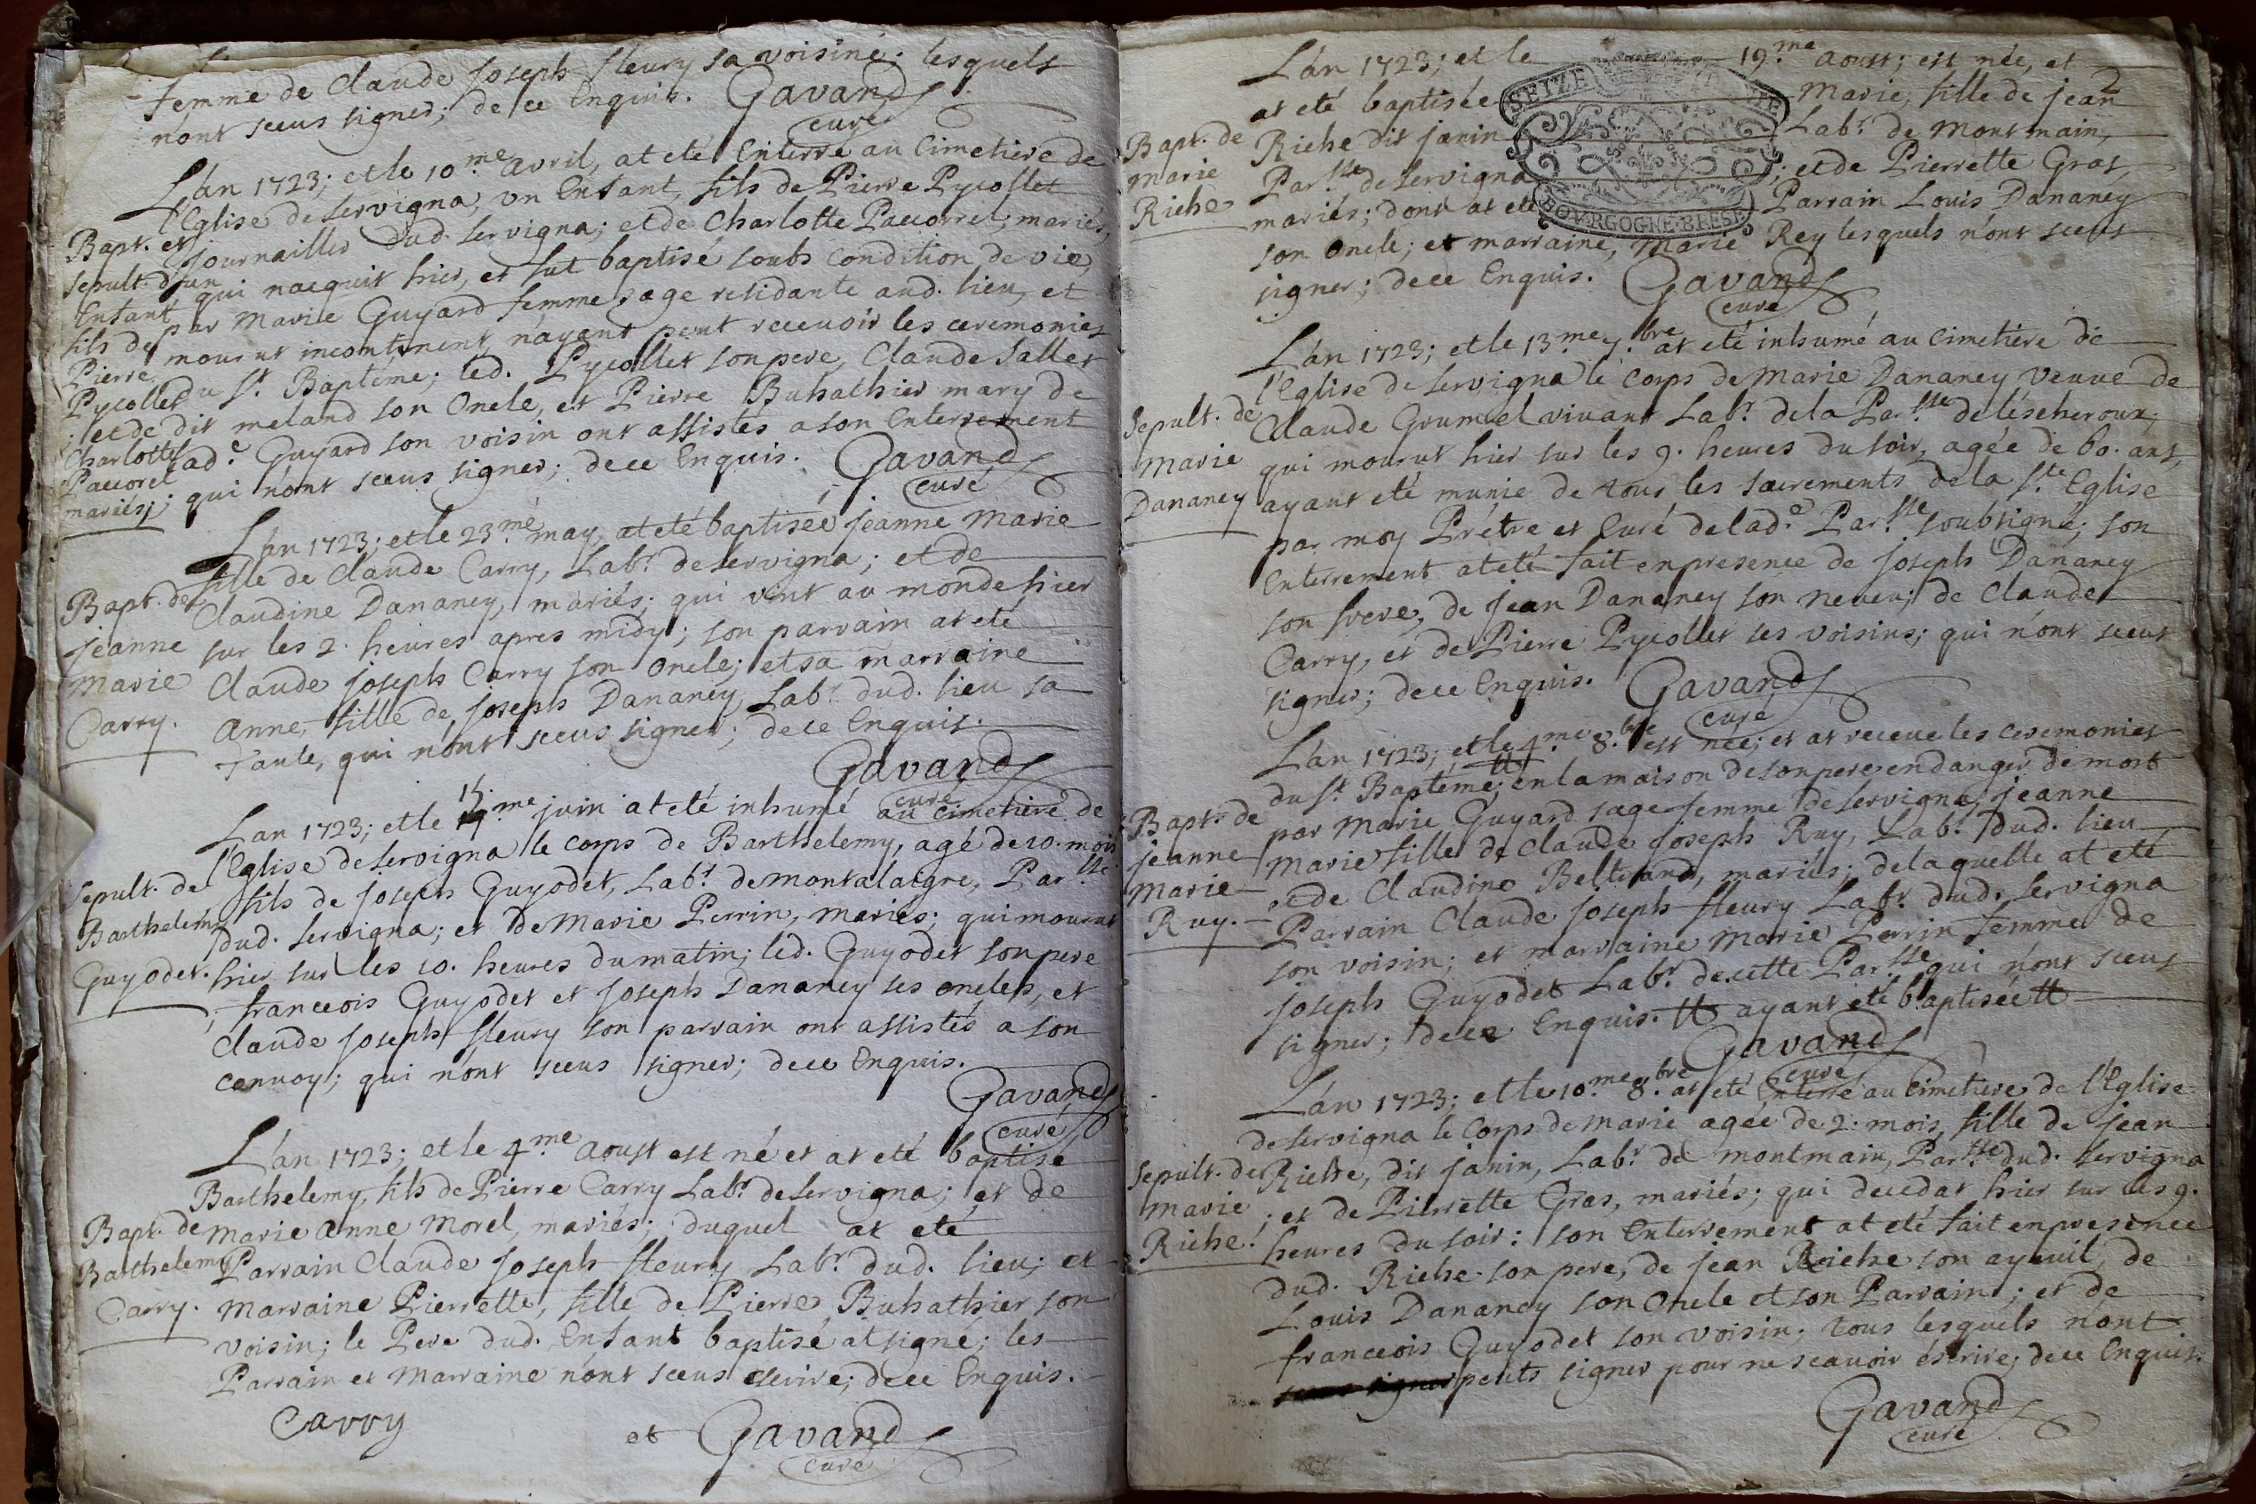 femme de Claude Joseph fleury sa voisine; lesquels
n'ont sceus signer; de ce Enquis. Gavand
curé
L'an 1723; et le 10.me avril, at eté Enterré au Cimetiere de
l'Eglise de Servigna, un Enfant, fils de Pierre Pycollet
journailler dud. Servigna; et de Charlotte Paccorrel, mariés,
qui nacquit hier, et fut baptisé soubs condition de vie,
par Marie Guyard femme sage residante aud. lieu, et
mourut incontinent, n'ayent peut recevoir les ceremonies
du St. Baptême; led. Pycollet son pere, Claude Sallet
dit meland son Oncle, et Pierre Buhathier mary de
lad.e Guyard son voisin ont assistés a son Enterrement
; qui n'ont sceus signer; de ce Enquis. Gavand
curé
Bapt. et
sepult. d'un
Enfant
fils de
Pierre
Pycollet
; et de
Charlotte
Paccorel
mariés;
L'an 1723; et le 23.me may, at eté baptisée jeanne Marie
fille de Claude Carry, Lab.r de Servigna; et de
Claudine Dananey, mariés; qui vent au monde hier
sur les 2. heures apres midy; son parrain at eté
Claude Joseph Carry son Oncle; et sa marraine
Anne, fille de joseph Dananey, Lab.r dud. lieu sa
Tante, qui n'ont sceus signer; de ce Enquis.
Gavand
curé
Bapt. de
jeanne
Marie
Carry.
L'an 1723; et le 15.me juin at eté inhumé au Cimetiere de
l'Eglise de Servigna le corps de Barthelemy, agé de 10. mois
fils de joseph Guyodet, Lab.r de montalaigre, Par.sse
dud. Servigna; et de Marie Perrin, mariés; qui mourut
hier sur les 10. heures du matin; led. Guyodet son pere
, franceois Guyodet et joseph Dananey ses oncles, et
Claude Joseph fleury son parrain ont assistés a son
convoy; qui n'ont sceus signer; de ce Enquis.
Gavand
curé
Sepult. de
Barthelemy
Guyodet.
L'an 1723; et le 4.me Aoust est né et at eté baptisé
Barthelemy, fils de Pierre Carry Lab.r de Servigna; et de
Marie Anne Morel, mariés; duquel at eté
Parrain Claude Joseph fleury Lab.r dud. lieu; et
Marraine Pierrette, fille de Pierre Buhathier son
voisin; le Pere dud. Enfant baptisé at signé; les
Parrain et Marraine n'ont sceus escrire; de ce Enquis.
Carry et Gavand
curé
Bapt. de
Barthelemy
Carry.
2
L'an 1723; et le 19.me Aoust; est née, et
at eté baptisée Marie, fille de jean
Riche dit janin Lab.r de Montmain,
Par.sse de Servigna; et de Pierrette Gras,
mariés; dont at eté Parrain Louis Dananey
son Oncle; et marraine, Marie Rey lesquels n'ont sceus
signer; de ce Enquis. Gavand
curé
SEIZE
BOVRGOGNE·BRESSE
Bapt. de
Marie
Riche
L'an 1723; et le 13.me 7.bre at eté inhumé au Cimetiere de
l'Eglise de Servigna le corps de Marie Dananey veuve de
Claude Grumel vivant Lab.r de la Par.sse de léscheroux,
qui mourut hier sur les 9. heures du soir, agée de 60. ans,
ayant eté munie de tous les sacrements de la S.te Eglise
par moy Prétre et Curé de lad.e Par.sse soubsigné; son
Enterrement at eté fait en presence de joseph Dananey
son frere, de jean Dananey son neveu; de Claude
Carry, et de Pierre Pycollet ses voisins; qui n'ont sceus
signer; de ce Enquis. Gavand
curé
Sepult. de
Marie
Dananey
L'an 1723; et le 4.me 8.bre est née; et at receue les ceremonies
du St. Baptême; en la maison de son pere en danger de mort
par Marie Guyard sage femme de Servigna, jeanne
Marie fille de Claude Joseph Ruy, Lab.r dud. lieu
et de Claudine Beltrand, mariés; de laquelle at eté
Parrain Claude joseph fleury Lab.r dud. Servigna
son voisin; et marraine Marie Perrin femme de
joseph Guyodet Lab.r de cette Par.sse qui n'ont sceus
signer; de ce Enquis. # ayant eté baptisée #
Gavand
curé
Bapt. de
jeanne
Marie
Ruy.
L'an 1723; et le 10.me 8.bre at eté Enterré au Cimetiere de l'Eglise
de Servigna le corps de Marie agée de 2. mois, fille de jean
Riche, dit janin, Lab.r de montmain, Par.sse dud. Servigna
; et de Pierrette Gras, mariés; qui decedat hier sur les 9.
heures du soir: son Enterrement at eté fait en presence
dud. Riche son pere, de jean Riche son ayeuil, de
Louis Dananey son Oncle et son Parrain; et de
franceois Guyodet son voisin; tous lesquels n'ont
peuts signer pour ne scavoir éscrire; de ce Enquis.
Gavand
curé
Sepult. de
Marie
Riche.